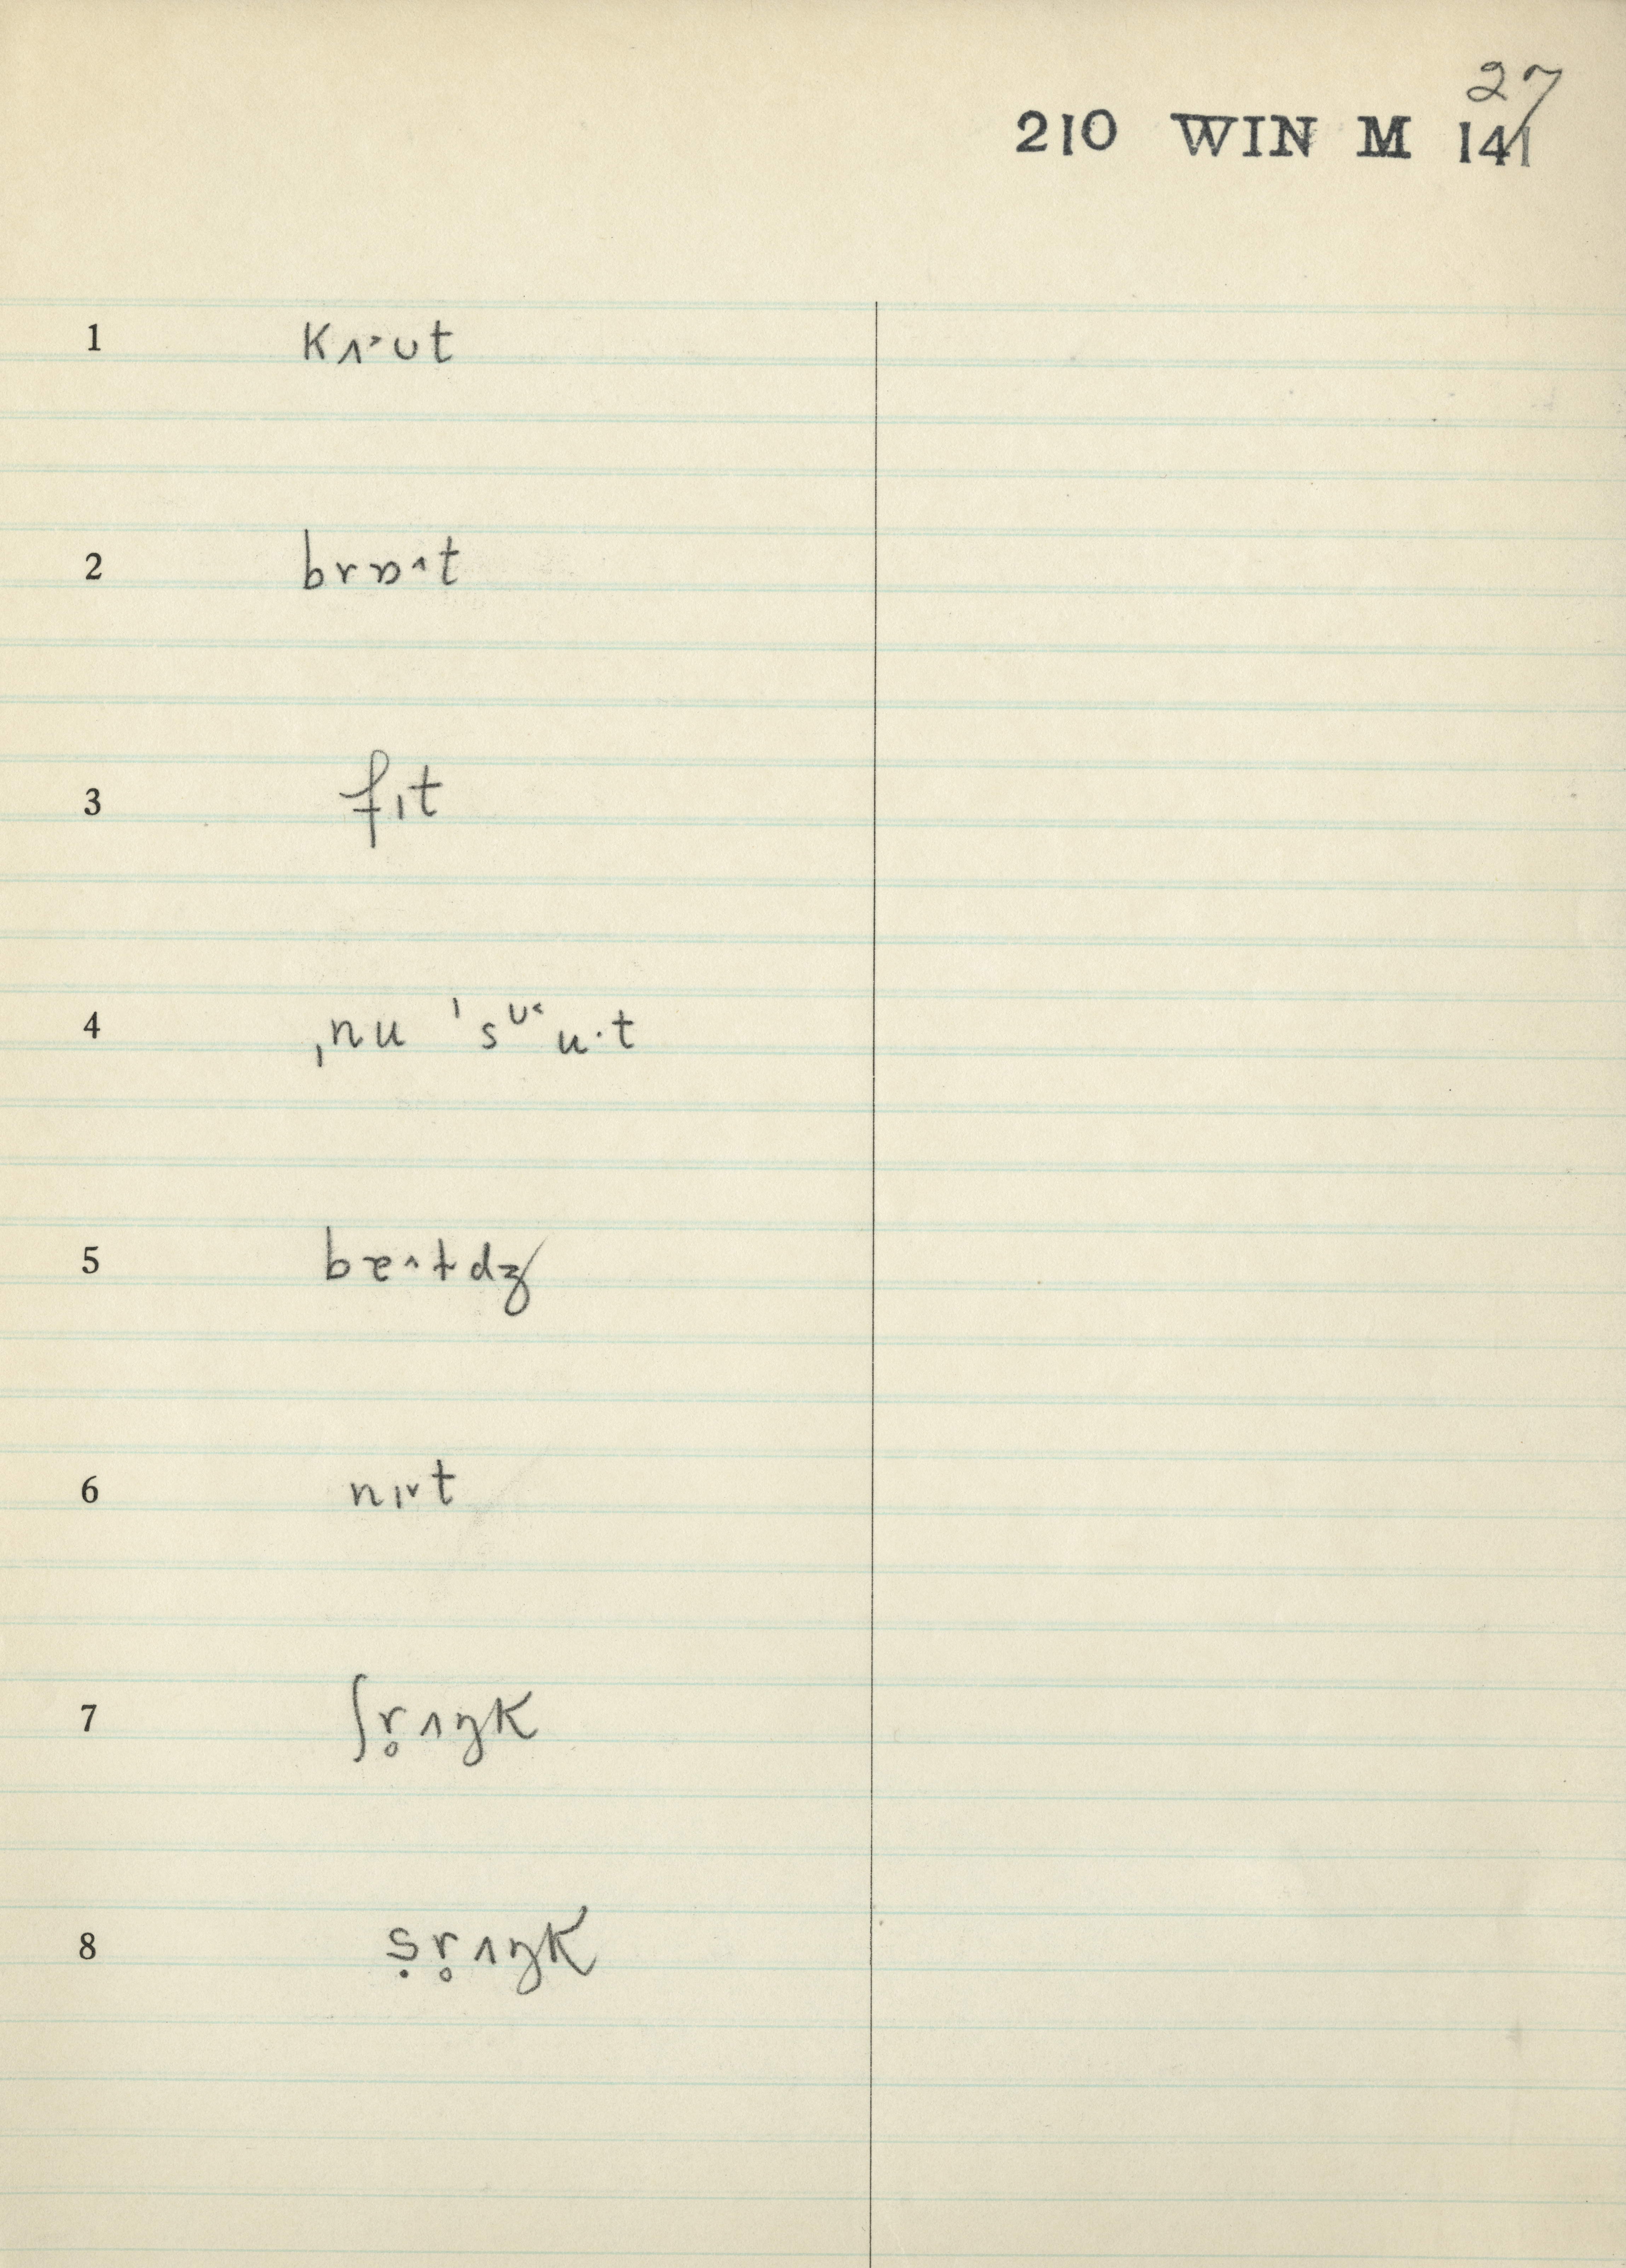 27
210 WIN M 141
1 kʌ˃ʊt
2 brɒ˄t
3 fɪt
4 ˌnu ˈsᶷ˂u·t
5 bɛ˄tdʒ
6 nɪ˅t
7 ʃr̥ʌŋk
8 ṣr̥ʌŋk